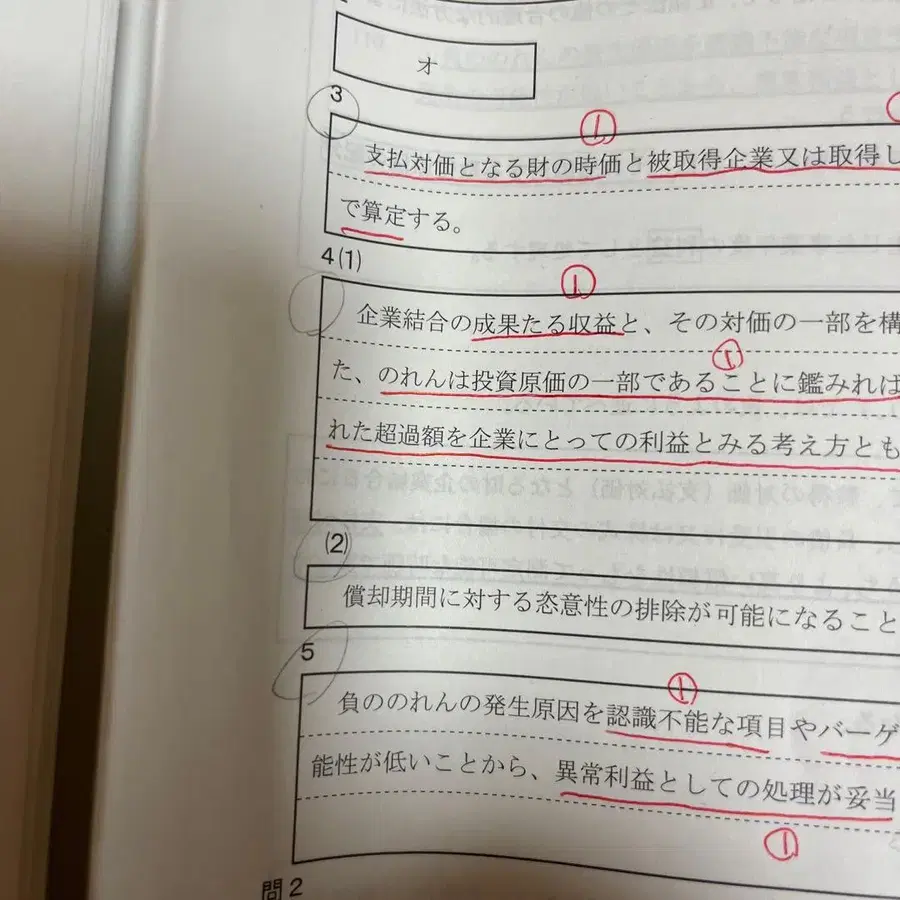 オ
3
①
支払対価となる財の時価と被取得企業又は取得し
で算定する。
4(1)
①
企業結合の成果たる収益と、その対価の一部を構
①
た、のれんは投資原価の一部であることに鑑みれば
れた超過額を企業にとっての利益とみる考え方とも
(2)
償却期間に対する恣意性の排除が可能になること
5
①
負ののれんの発生原因を認識不能な項目やバーゲ
能性が低いことから、異常利益としての処理が妥当
①
問2